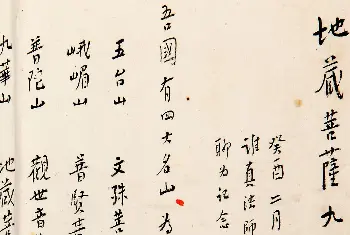 地藏菩薩九
癸酉二月
誰真法師
聊为記念
吾國有四大名山为
五台山 文殊菩
峨嵋山 普賢菩
普陀山 觀世音
九華山 地藏菩